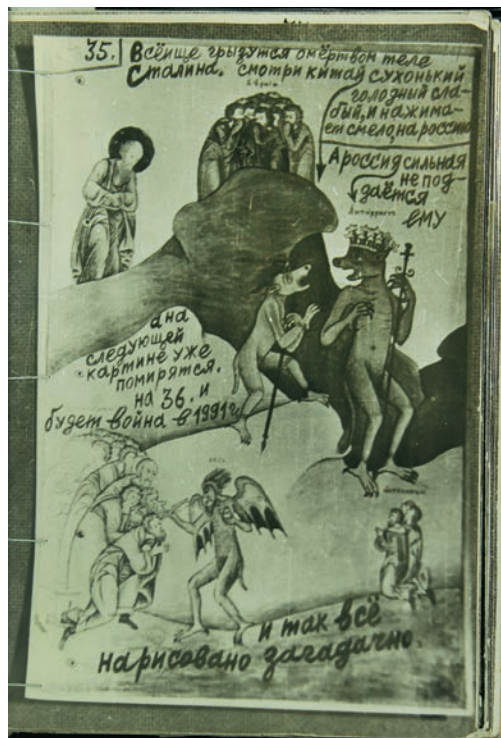 35. Всёище грызутся омёртвом теле
Сталина. смотри китай сухонький
голодный сла-
бый, и нажима-
ет смело, на россию
А россия сильная
не под-
даётся
ему
а на
следующей
картине уже
помирятся.
на 36. и
будет война в 1991г
и так всё
нарисовано загадачно.